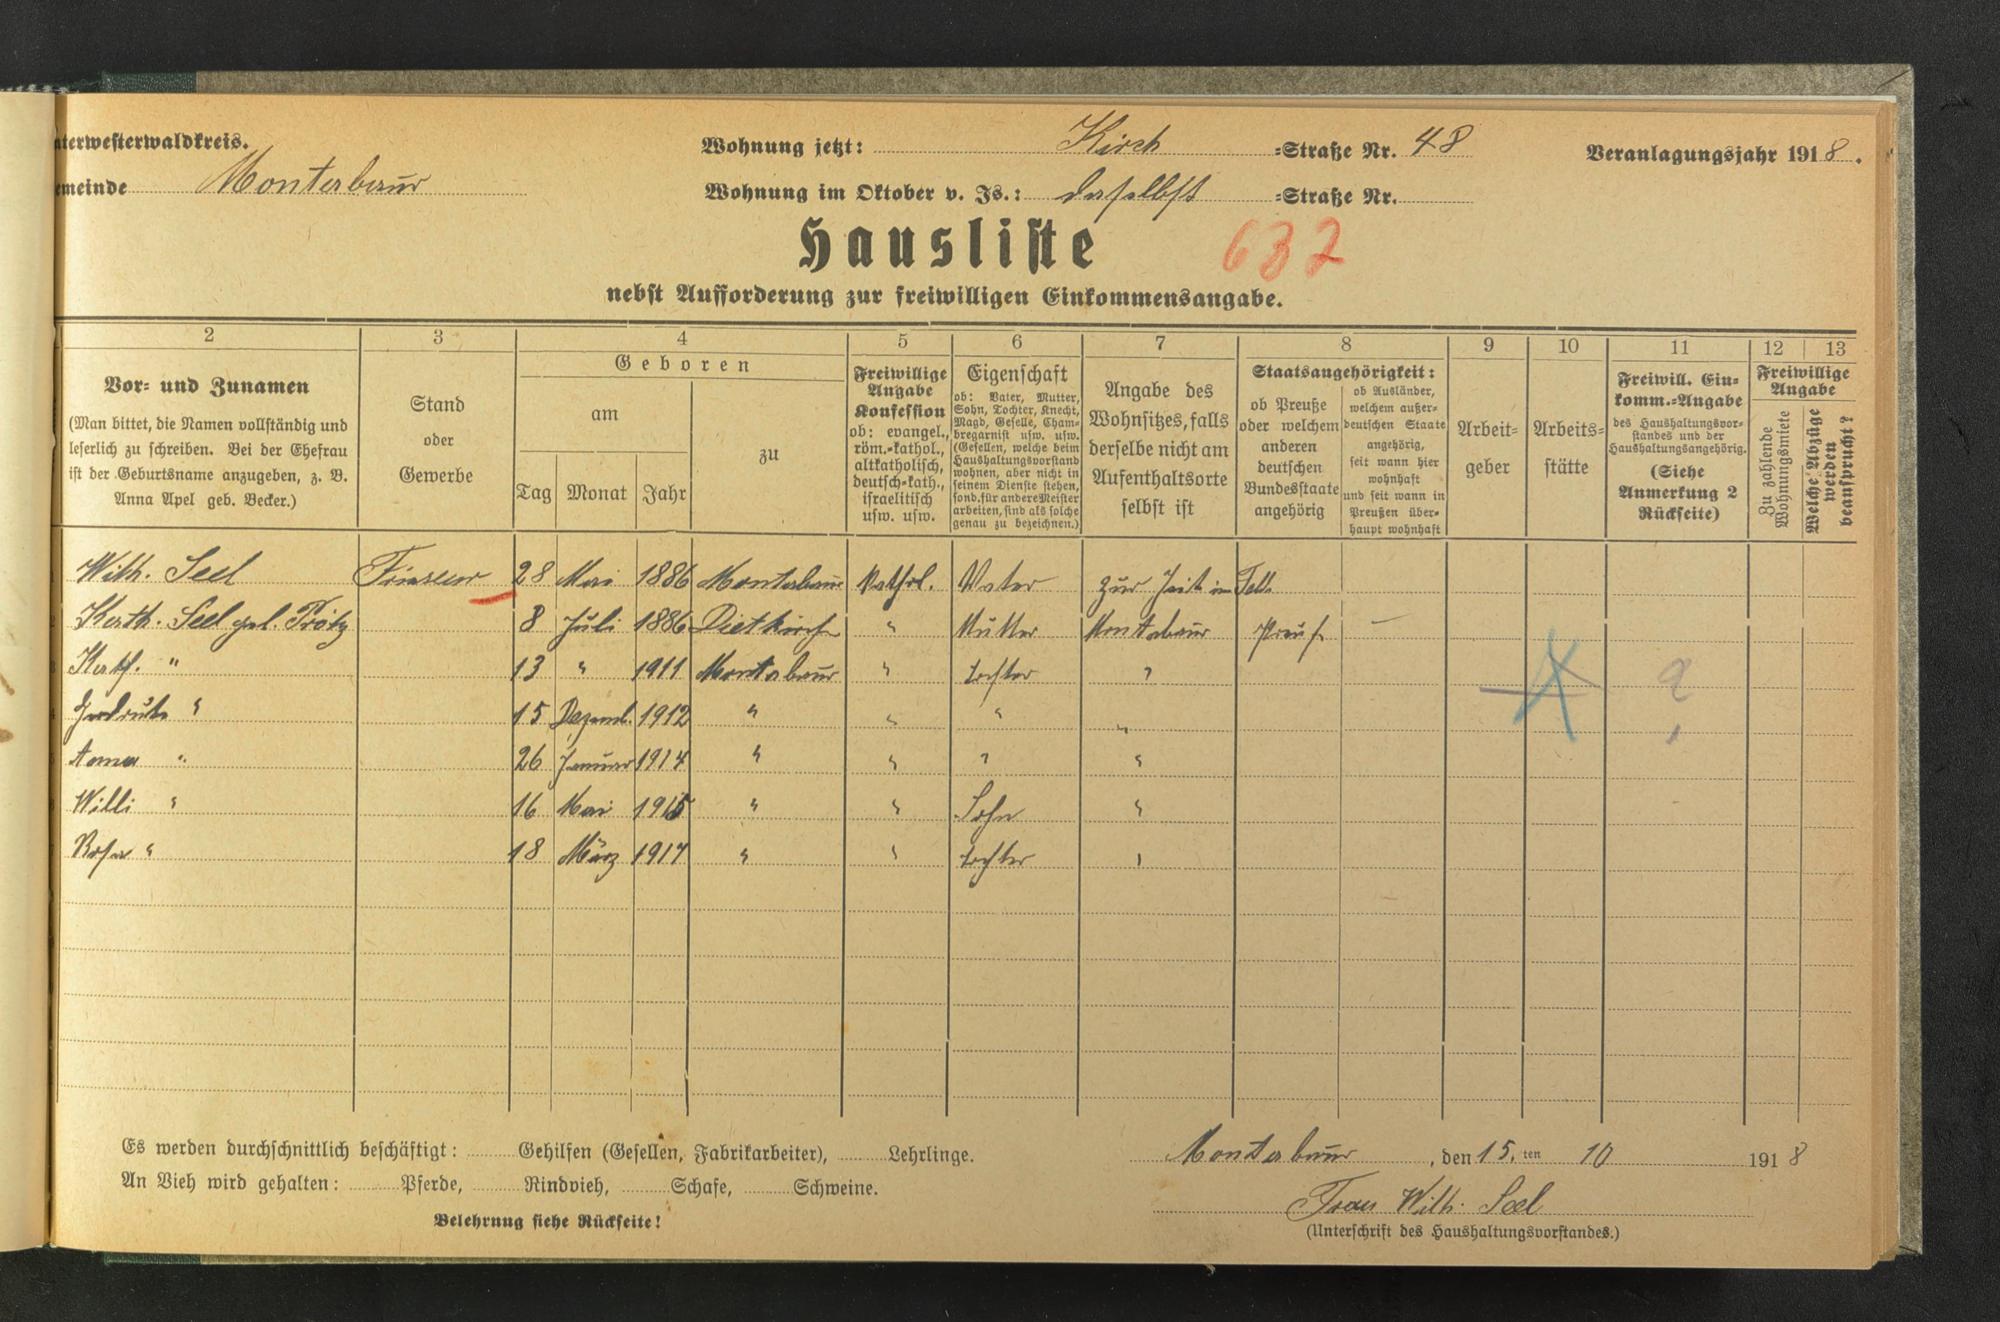 nterwesterwaldkreis.
Wohnung jetzt: Kirch =Straße Nr. 48
Veranlagungsjahr 1918.
emeinde Montabaur
Wohnung im Oktober v. Js.: daselbst =Straße Nr.
Hausliste 637
nebst Aufforderung zur freiwilligen Einkommensangabe.
2 3 4 5 6 7 8 9 10 11 12 13
Vor- und Zunamen
(Man bittet, die Namen vollständig und
leserlich zu schreiben. Bei der Ehefrau
ist der Geburtsname anzugeben, z. B.
Anna Apel geb. Becker.)
Stand
oder
Gewerbe
Geboren
am
Tag Monat Jahr
zu
Freiwillige
Angabe
Konfession
ob: evangel.,
röm.-kathol.,
altkatholisch,
deutsch-kath.,
israelitisch
usw. usw.
Eigenschaft
ob: Vater, Mutter,
Sohn, Tochter, Knecht,
Magd, Geselle, Cham-
bregarnist usw. usw.
(Gesellen, welche beim
Haushaltungsvorstand
wohnen, aber nicht in
seinem Dienste stehen,
sond. für andere Meister
arbeiten, sind als solche
genau zu bezeichnen.)
Angabe des
Wohnsitzes, falls
derselbe nicht am
Aufenthaltsorte
selbst ist
Staatsangehörigkeit:
ob Preuße
oder welchem
anderen
deutschen
Bundesstaate
angehörig
ob Ausländer,
welchem außer-
deutschen Staate
angehörig,
seit wann hier
wohnhaft
und seit wann in
Preußen über-
haupt wohnhaft
Arbeit-
geber
Arbeits-
stätte
Freiwill. Ein-
komm.-Angabe
des Haushaltungsvor-
standes und der
Haushaltungsangehörig.
(Siehe
Anmerkung 2
Rückseite)
Freiwillige
Angabe
Zu zahlende
Wohnungsmiete
Welche Abzüge
werden
beansprucht?
Wilh. Seel Friseur 28 Mai 1886 Montabaur Kathol. Vater zur Zeit im Felde
Kath. Seel geb. Trötz 8 Juli 1886 Dietkirchen " Mutter Montabaur Preuß. —
Kath. " 13 " 1911 Montabaur " Tochter "
Gerdrute " 15 Dezemb. 1912 " " " "
Anna " 26 Januar 1914 " " " "
Willi " 16 Mai 1915 " " Sohn "
Rosa " 18 März 1917 " " Tochter "
Es werden durchschnittlich beschäftigt: Gehilfen (Gesellen, Fabrikarbeiter), Lehrlinge.
Montabaur, den 15.ten 10 1918
An Vieh wird gehalten: Pferde, Rindvieh, Schafe, Schweine.
Frau Wilh. Seel
Belehrung siehe Rückseite!
(Unterschrift des Haushaltungsvorstandes.)